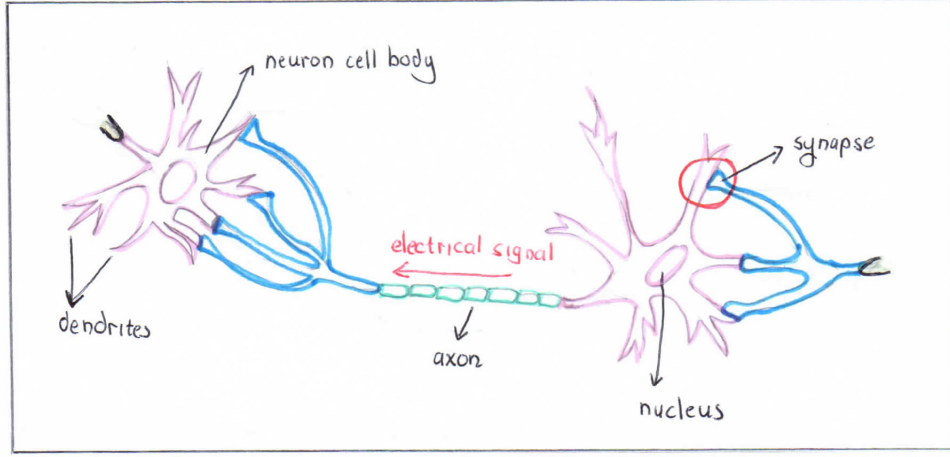 neuron cell body
synapse
electrical signal
dendrites
axon
nucleus